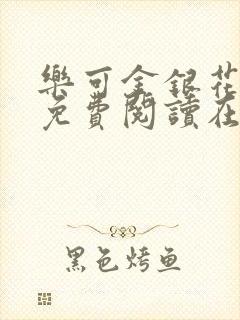 樂可金銀花
免費閱讀在
黑色烤鱼